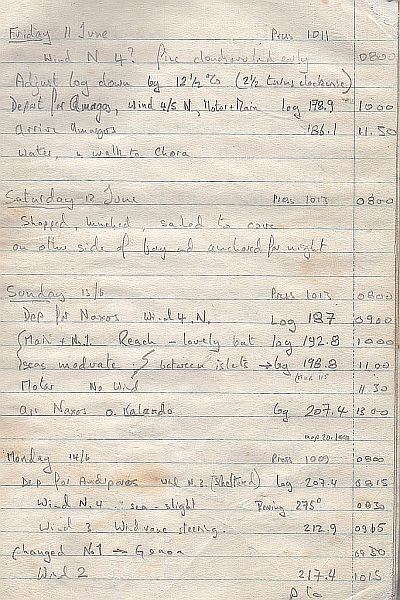 Friday 11 June Press 1011
Wind N 4? Fine cloudless early 0800
Adjust log down by 12½% (2½ turns clockwise)
Depart for Amorgos, wind 4/5 N, Motor+Main log 178.9 1000
arrive Amorgos 186.1 11.50
water, & walk to Chora
Saturday 12 June Press 1013 0800
Shopped, lunched, sailed to cove
on other side of bay and anchored for night
Sunday 13/6 Press 1013 0800
Dep for Naxos Wind 4. N. Log 187 0900
Main + No.1. Reach - lovely but log 192.8 1000
seas moderate between islets → log 198.8 11.00
Motor No Wind 11 30
arr Naxos O. Kalando log 207.4 1300
Monday 14/6 Press 1009 0800
Dep for Andiparos Wind N.2 (Sheltered) log 207.4 0815
Wind N.4 ∴ sea - slight Bearing 275° 0830
Wind 3 Windvane steering. 212.9 0915
Changed No1 → Genoa 0930
Wind 2 217.4 1015